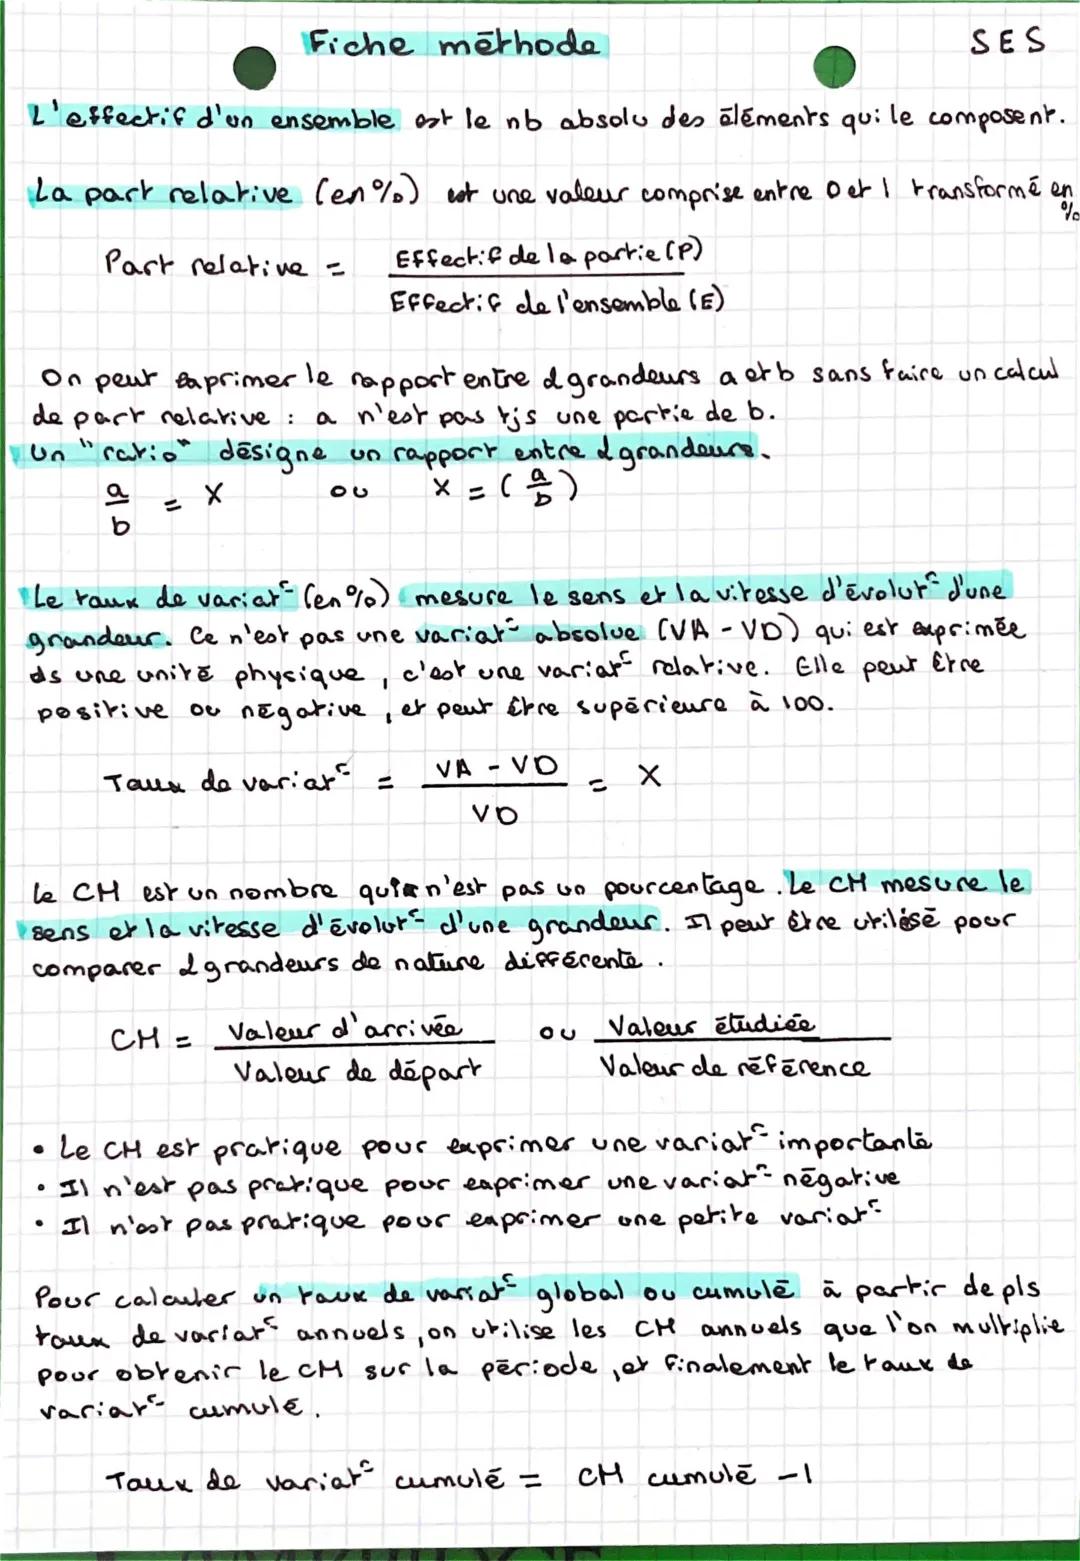 Fiche méthode
SES
L'effectif d'un ensemble est le nb absolu des éléments qui le composent.
La part relative (en %) est une valeur comprise entre 0 et 1 transformé en %
Part relative = Effectif de la partie (P)
Effectif de l'ensemble (E)
On peut exprimer le rapport entre 2 grandeurs a et b sans faire un calcul
de part relative : a n'est pas tjs une partie de b.
Un "ratio" désigne un rapport entre 2 grandeurs.
a/b = X ou X = (a/b)
Le taux de variat° (en %) mesure le sens et la vitesse d'évolut° d'une
grandeur. Ce n'est pas une variat° absolue (VA - VD) qui est exprimée
ds une unité physique, c'est une variat° relative. Elle peut être
positive ou négative, et peut être supérieure à 100.
Taux de variat° = VA - VD = X
VD
Le CM est un nombre qui n'est pas un pourcentage. Le CM mesure le
sens et la vitesse d'évolut° d'une grandeur. Il peut être utilisé pour
comparer 2 grandeurs de nature différente.
CM = Valeur d'arrivée ou Valeur étudiée
Valeur de départ Valeur de référence
• Le CM est pratique pour exprimer une variat° importante
• Il n'est pas pratique pour exprimer une variat° négative
• Il n'est pas pratique pour exprimer une petite variat°
Pour calculer un taux de variat° global ou cumulé à partir de pls
taux de variat° annuels, on utilise les CM annuels que l'on multiplie
pour obtenir le CM sur la période, et finalement le taux de
variat° cumulé.
Taux de variat° cumulé = CM cumulé -1